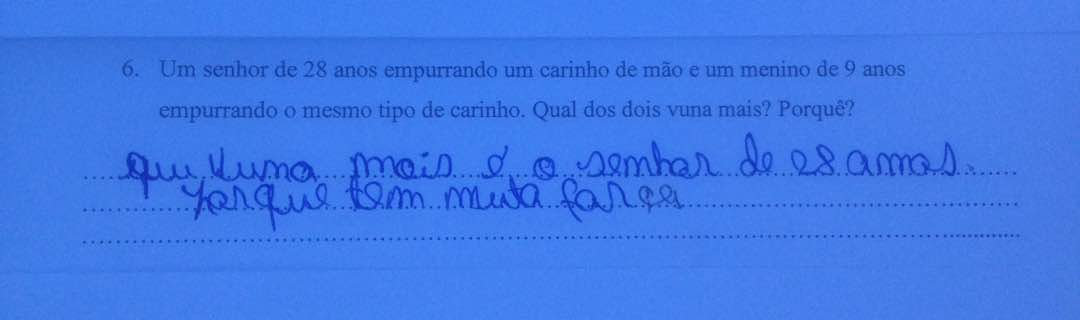 6. Um senhor de 28 anos empurrando um carinho de mão e um menino de 9 anos
empurrando o mesmo tipo de carinho. Qual dos dois vuna mais? Porquê?
qui Vuna mais é o senhor de 28 anos.
Porque tem muta força